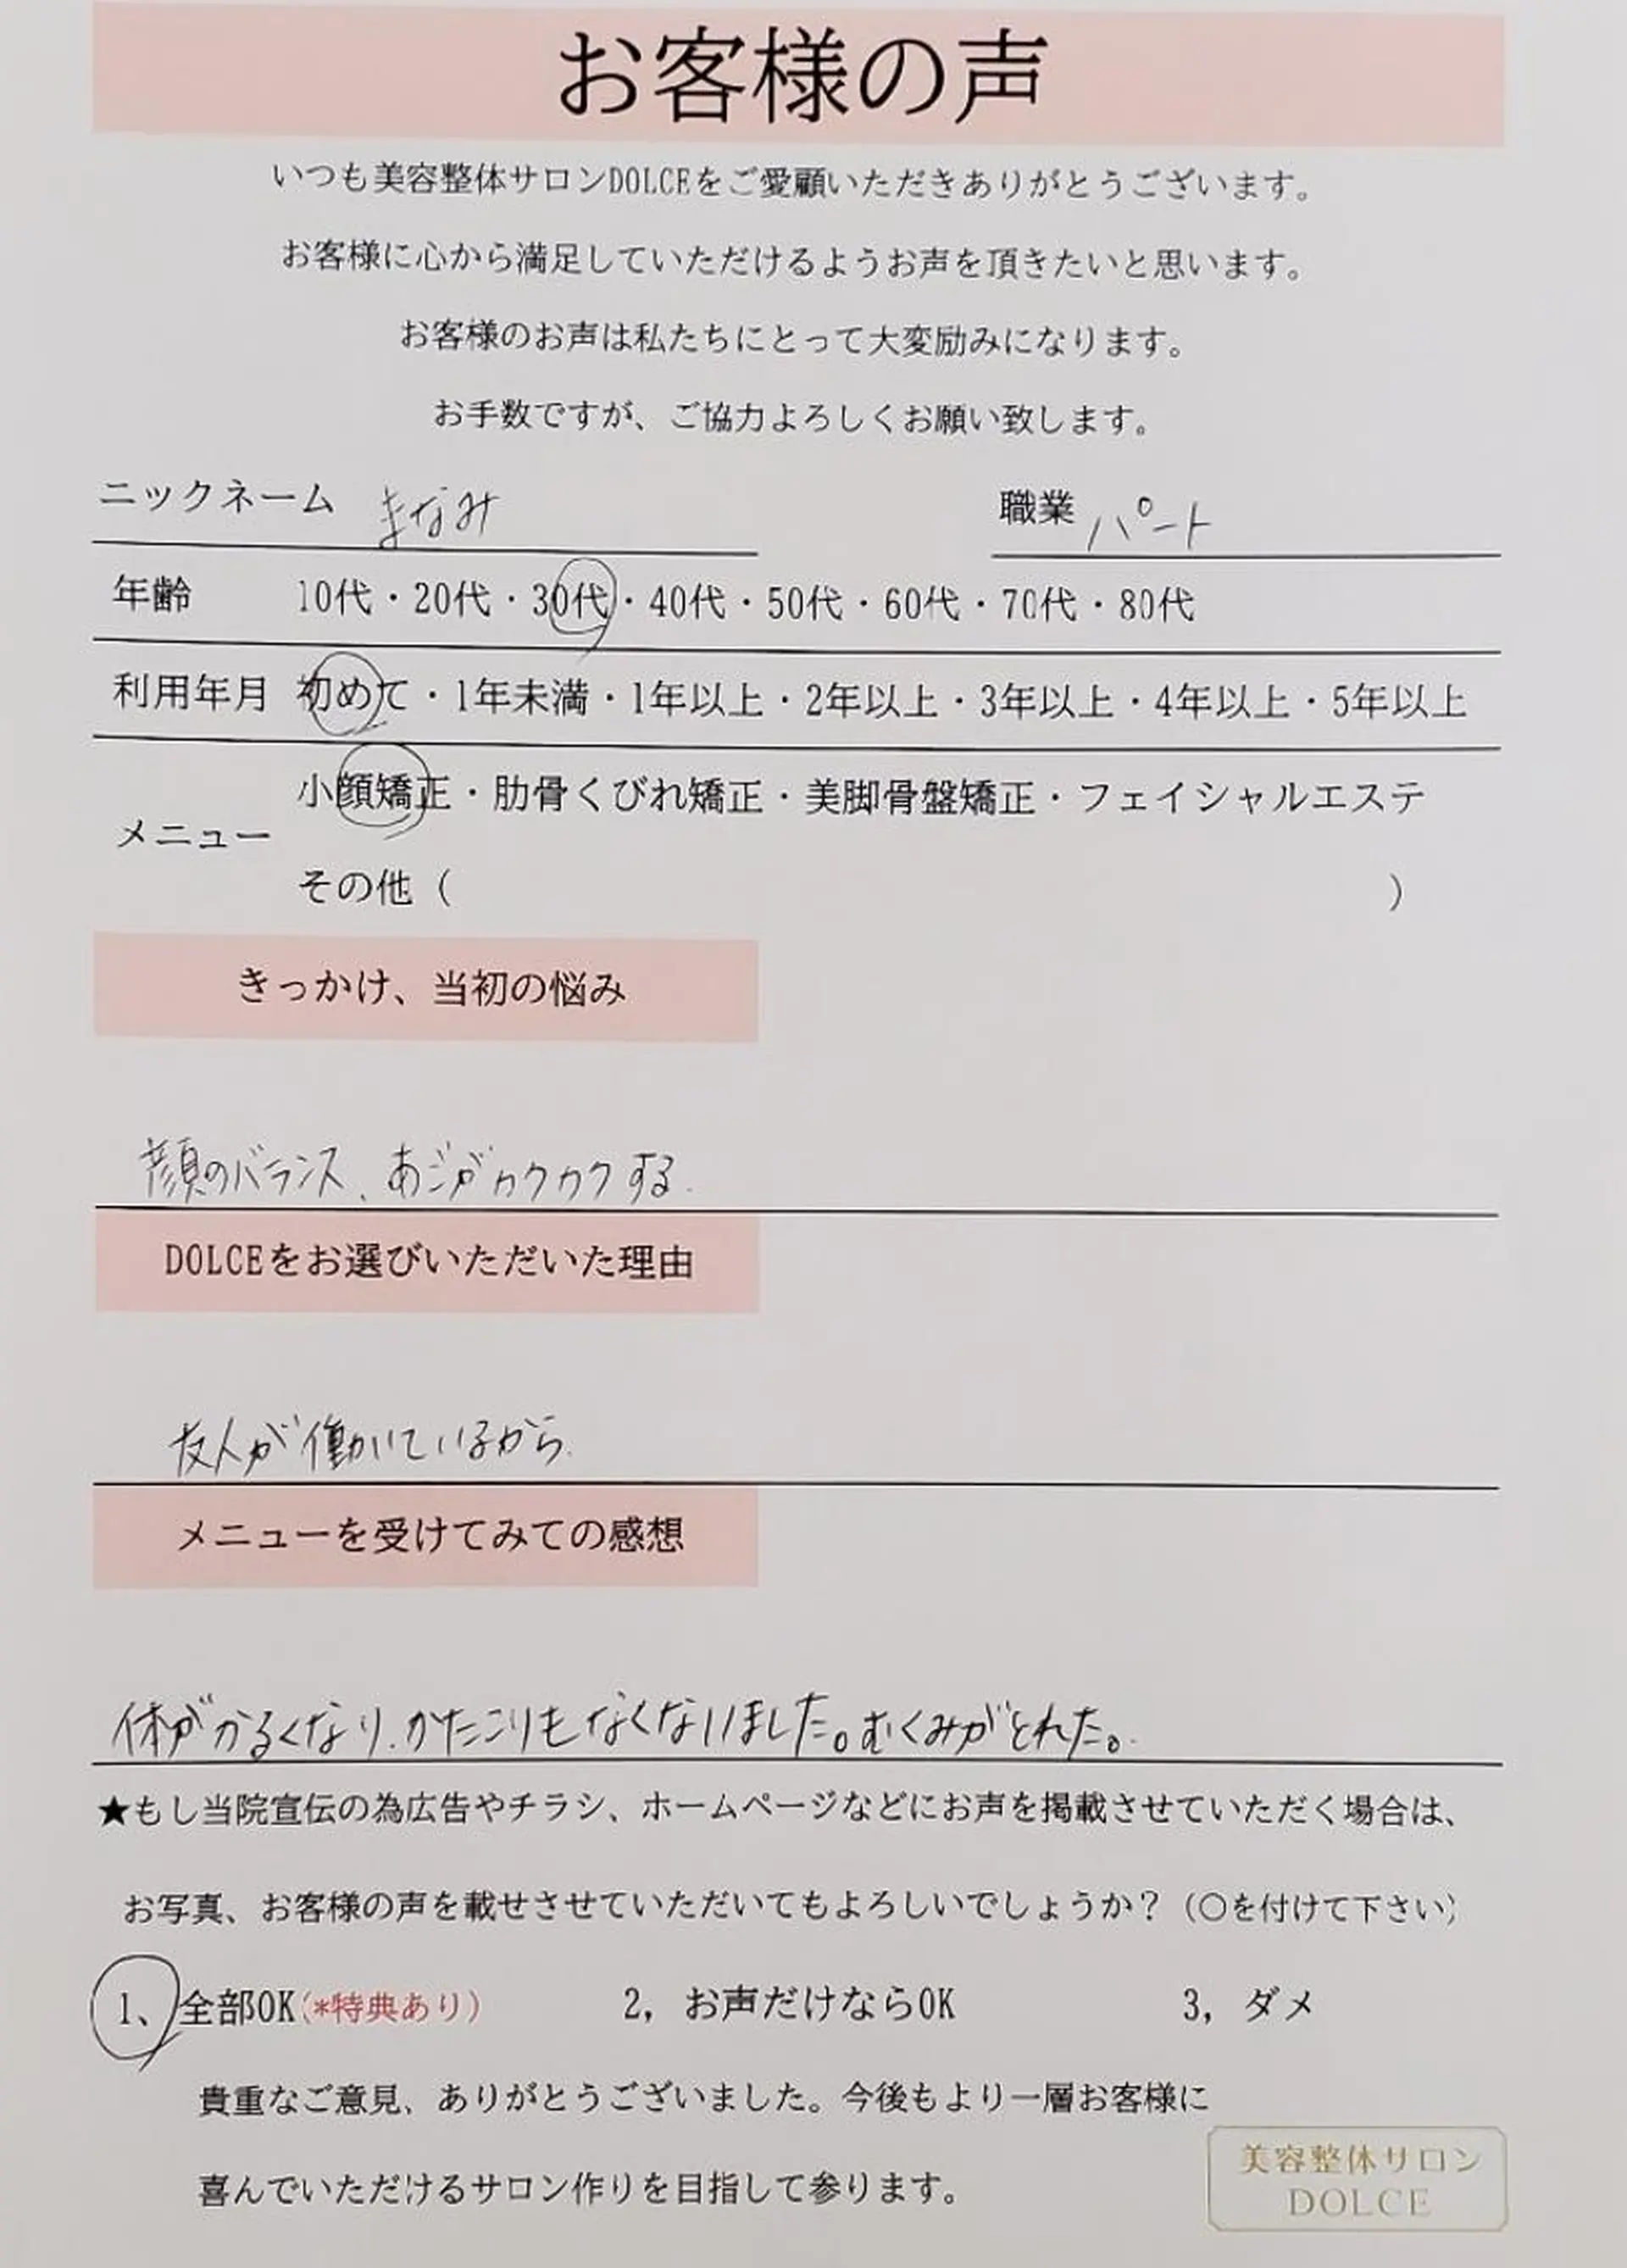 お客様の声
いつも美容整体サロンDOLCEをご愛顧いただきありがとうございます。
お客様に心から満足していただけるようお声を頂きたいと思います。
お客様のお声は私たちにとって大変励みになります。
お手数ですが、ご協力よろしくお願い致します。
ニックネーム まなみ 職業 パート
年齢 10代・20代・30代・40代・50代・60代・70代・80代
利用年月 初めて・1年未満・1年以上・2年以上・3年以上・4年以上・5年以上
メニュー 小顔矯正・肋骨くびれ矯正・美脚骨盤矯正・フェイシャルエステ
その他（ ）
きっかけ、当初の悩み
顔のバランス、あごがカクカクする.
DOLCEをお選びいただいた理由
友人が働いているから.
メニューを受けてみての感想
体がかるくなり、かたこりもなくなりました。むくみがとれた。
★もし当院宣伝の為広告やチラシ、ホームページなどにお声を掲載させていただく場合は、
お写真、お客様の声を載せさせていただいてもよろしいでしょうか？（〇を付けて下さい）
1、全部OK(*特典あり) 2，お声だけならOK 3，ダメ
貴重なご意見、ありがとうございました。今後もより一層お客様に
喜んでいただけるサロン作りを目指して参ります。
美容整体サロン
DOLCE